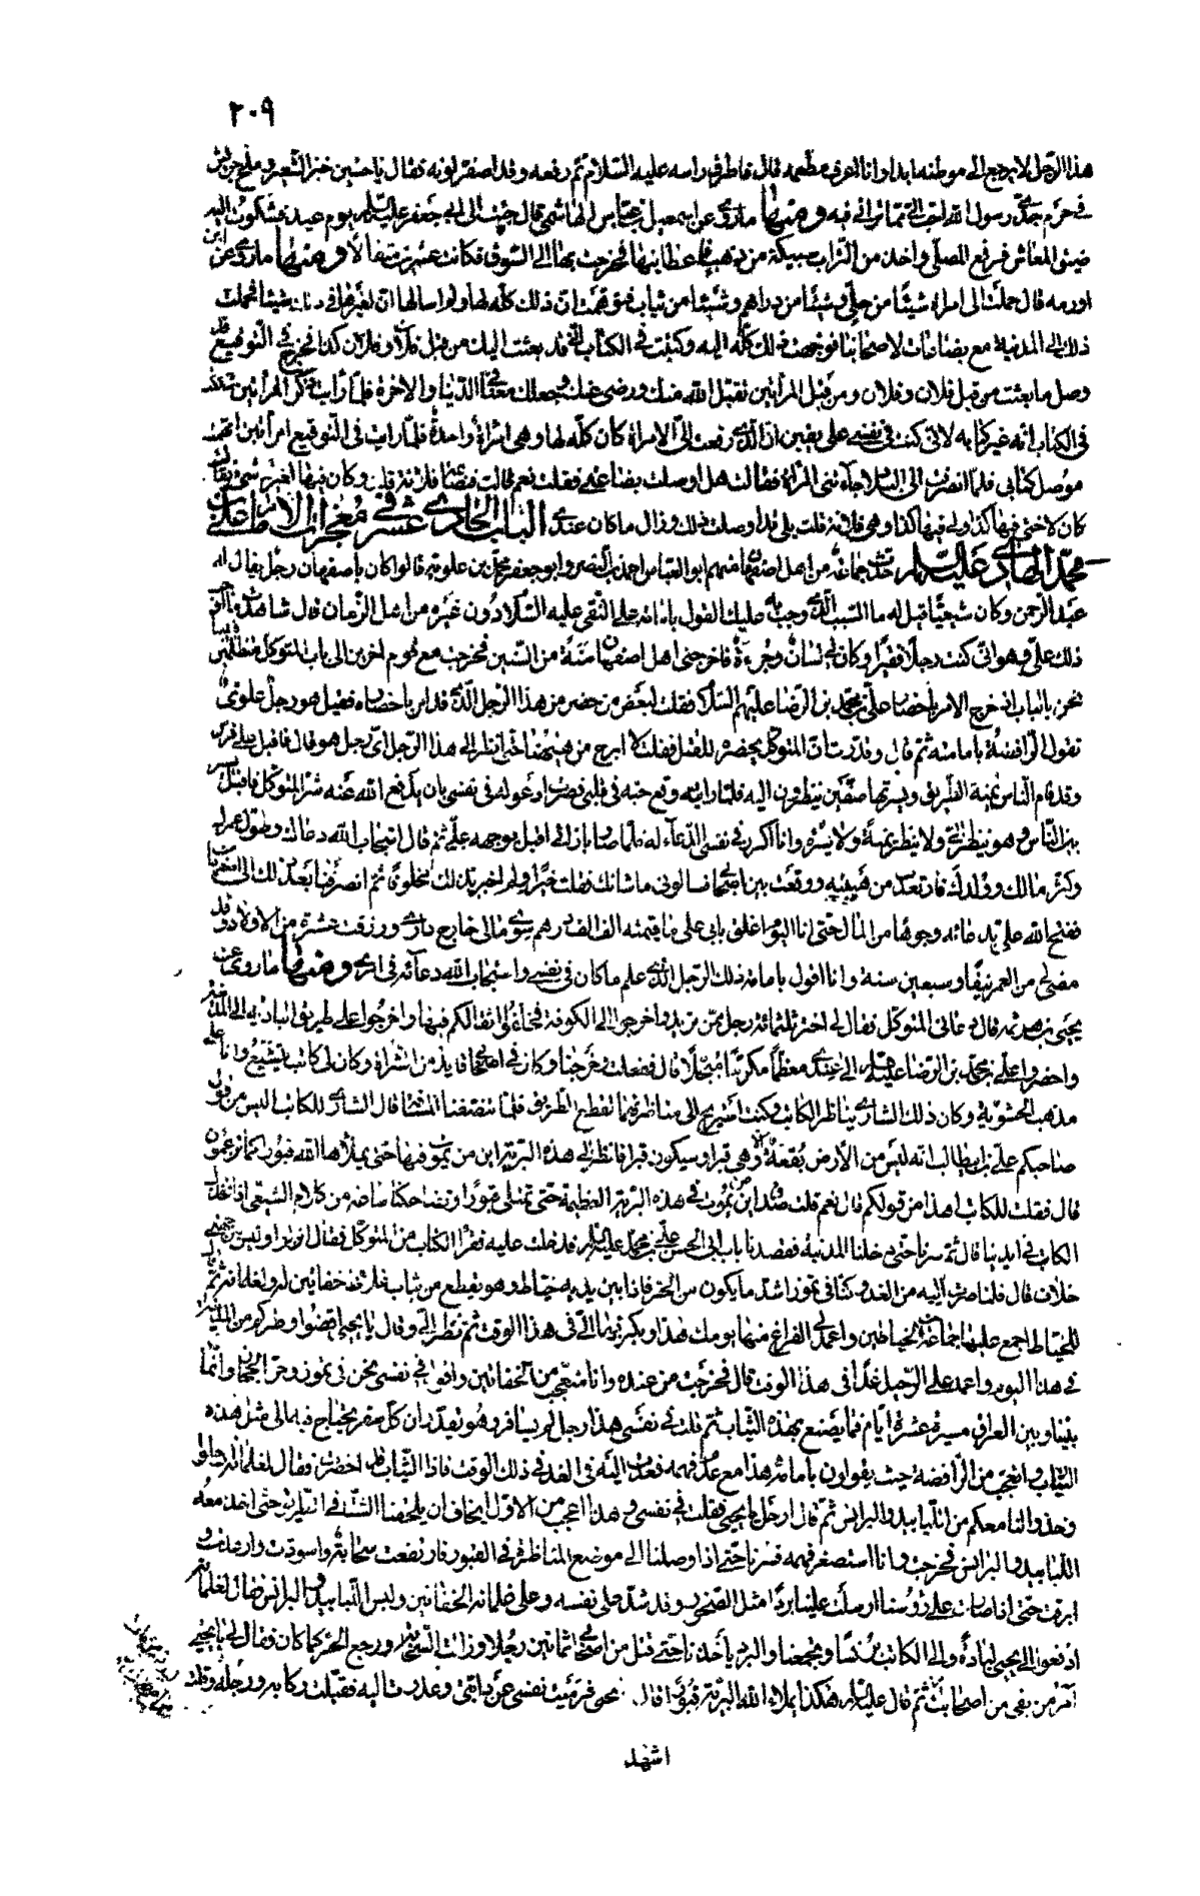 ٢٠٩
هذا الرجل لا يرجع الى موطنه ابدا وانا اعرف مطعمه قال فاطرق راسه عليه السلام ثم رفعه وقد اصفر لونه فقال يا حسين خبز الشعير وملح جريش
في حرم جدي رسول الله احب الي مما تراني فيه ومنها ما روي عن اسمعيل بن عباس الهاشمي قال جئت الى ابي جعفر عليه السلام يوم عيد فشكوت اليه
ضيق المعاش فرفع المصلى واخذ من التراب سبيكة من ذهب فاعطانيها فخرجت بها الى السوق فكانت ستة عشر مثقالا ومنها ما روي عن ابن
اورمه قال حملت الى امراة شيئا من حلي وشيئا من دراهم وشيئا من ثياب فتوهمت ان ذلك كله لها ولم اسالها ان لغيرها في ذلك شيئا فحملت
ذلك الى المدينة مع بضاعات لاصحابنا فوجهت ذلك كله اليه وكتبت في الكتاب اني قد بعثت اليك من قبل فلانة وفلان كذا فخرج في التوقيع قد
وصل ما بعثت من قبل فلان وفلان ومن قبل المرأتين تقبل الله منك ورضي عنك وجعلك معنا في الدنيا والاخرة فلما رأيت ذكر المرأتين شككت
في الكتاب انه غير كتابه لاني كنت في نفسي على يقين ان الذي دفعت الى الامراة كان كله لها وهي امراة واحدة فلما رايت في التوقيع امرأتين اتهمت
موصل كتابي فلما انصرفت الى البلاد جاءتني المرأة فقالت هل اوصلت بضاعتي فقلت نعم قالت وبضاعة فلانة قلت وكان فيها لغيرك شيء قالت
كان لاختي فيها كذا ولي فيها كذا وهي فلانة قلت بلى قد اوصلت ذلك وزال ما كان عندي الباب الحادي عشر في معجزات الامام علي بن
محمد الهادي عليه السلام حدث جماعة من اهل اصفهان منهم ابو العباس احمد بن النصر وابو جعفر محمد بن علوية قالوا كان باصفهان رجل يقال له
عبد الرحمن وكان شيعيا قيل له ما السبب الذي وجب به عليك القول بامامة علي النقي عليه السلام دون غيره من اهل الزمان قال شاهدت ما اوجب
ذلك علي وهو اني كنت رجلا فقيرا وكان لي لسان وجرءة فاخرجني اهل اصفهان سنة من السنين فخرجت مع قوم اخرين الى باب المتوكل متظلمين
نحن بالباب اذ خرج الامر باحضار علي بن محمد بن الرضا عليهم السلام فقلت لبعض من حضر من هذا الرجل الذي قد امر باحضاره فقيل هو رجل علوي
تقول الرافضة بامامته ثم قال وقدرت ان المتوكل يحضره للقتل فقلت لا ابرح من ههنا حتى انظر الى هذا الرجل اي رجل هو قال فاقبل على فرس
وقد قام الناس يمنة الطريق ويسرتها صفين ينظرون اليه فلما رايته وقع حبه في قلبي فصرت ادعو له في نفسي بان يدفع الله عنه شر المتوكل فاقبل يسير
بين الناس وهو ينظر ولا ينظر يمنة ولا يسرة وانا اكرر في نفسي الدعاء له فلما صار بازائي اقبل بوجهه علي ثم قال استجاب الله دعاك وطول عمرك
وكثر مالك وولدك فارتعدت من هيبته ووقعت بين اصحابي فسالوني ما شانك فقلت خيرا ولم اخبر بذلك مخلوقا ثم انصرفنا بعد ذلك الى اصفهان
ففتح الله علي بدعائه وجوها من المال حتى انا اليوم اغلق بابي على ما قيمته الف الف درهم سوى مالي خارج داري ورزقت عشرة من الاولاد وقد
مضى لي من العمر نيفا وسبعين سنة وانا اقول بامامة ذلك الرجل الذي علم ما كان في نفسي واستجاب الله دعائه في امري ومنها ما روي عن
يحيى بن هرثمة قال دعاني المتوكل فقال لي اختر ثلثمائة رجل ممن تريد واخرجوا الى الكوفة فخلفوا اثقالكم فيها واخرجوا على طريق البادية الى المدينة
واحضروا علي بن محمد بن الرضا عليه السلام الى عندي معظما مكرما مبجلا قال ففعلت وخرجنا وكان في اصحابي قايد من الشراة وكان لي كاتب يتشيع وانا على
مذهب الحشوية وكان ذلك الشاري يناظر الكاتب وكنت استريح الى مناظرتهما لقطع الطريق فلما تنصفنا المسافة قال الشاري للكاتب اليس من قول
صاحبكم علي بن ابي طالب انه ليس من الارض بقعة الا وهي قبرا وسيكون قبرا فانظر الى هذه البرية اين من يموت فيها حتى يملأها الله قبورا كما تزعمون
قال فقلت للكاتب اهذا من قولكم قال نعم قلت صدق اين من يموت في هذه البرية العظيمة حتى تمتلي قبورا وتضاحكنا ساعة من كلام الشيعي اذ انخذل
الكاتب في ايدينا قال ثم سرنا حتى دخلنا المدينة فقصدنا باب ابي الحسن علي بن محمد عليه السلام فدخلت عليه فقرأ الكتاب من المتوكل فقال انزلوا وليس من جهتي
خلاف قال فلما صرت اليه من الغد وكنا في تموز اشد ما يكون من الحر فاذا بين يديه خياط وهو يقطع من ثياب غلاظ خفاتين له ولغلمانه ثم قال
للخياط اجمع عليها جماعة من الخياطين واعمد الى الفراغ منها يومك هذا وبكر بها الي في هذا الوقت ثم نظر الي وقال يا يحيى اقضوا وطركم من المدينة
في هذا اليوم واعمد على الرحيل غدا في هذا الوقت قال فخرجت من عنده وانا متعجب من الخفاتين واقول في نفسي نحن في تموز وحر الحجاز وانما
بيننا وبين العراق مسيرة عشرة ايام فما يصنع بهذه الثياب ثم قلت في نفسي هذا رجل لم يسافر وهو يقدر ان كل سفر يحتاج فيه الى مثل هذه
الثياب واتعجب من الرافضة حيث يقولون بامامة هذا مع عدم فهمه فعدت اليه في الغد في ذلك الوقت فاذا الثياب قد احضرت فقال لغلمانه ارحلوا
وخذوا لنا معكم من اللبابيد والبرانس ثم قال ارحل يا يحيى فقلت في نفسي وهذا اعجب من الاول ايخاف ان يلحقنا الشتاء في الطريق حتى اخذ معه
اللبابيد والبرانس فخرجت وانا استصغر فهمه فسرنا حتى اذا وصلنا الى موضع المناظرة في القبور فارتفعت سحابة واسودت وارعدت و
ابرقت حتى اذا صارت على رؤسنا ارسلت علينا بردا مثل الصخر وقد شد على نفسه وعلى غلمانه الخفاتين ولبس اللبابيد والبرانس فقال لغلمانه
ادفعوا الى يحيى لبادة والى الكاتب برنسا وتجمعنا والبرد يأخذنا حتى قتل من اصحابي ثمانين رجلا وزالت السحابة ورجع الحر كما كان فقال لي يا يحيى
آمر من بقي من اصحابك ثم قال عليه السلام هكذا يملاء الله البرية قبورا قال يحيى فرميت نفسي عن دابتي وعدوت اليه فقبلت ركابه ورجله وقلت
اشهد